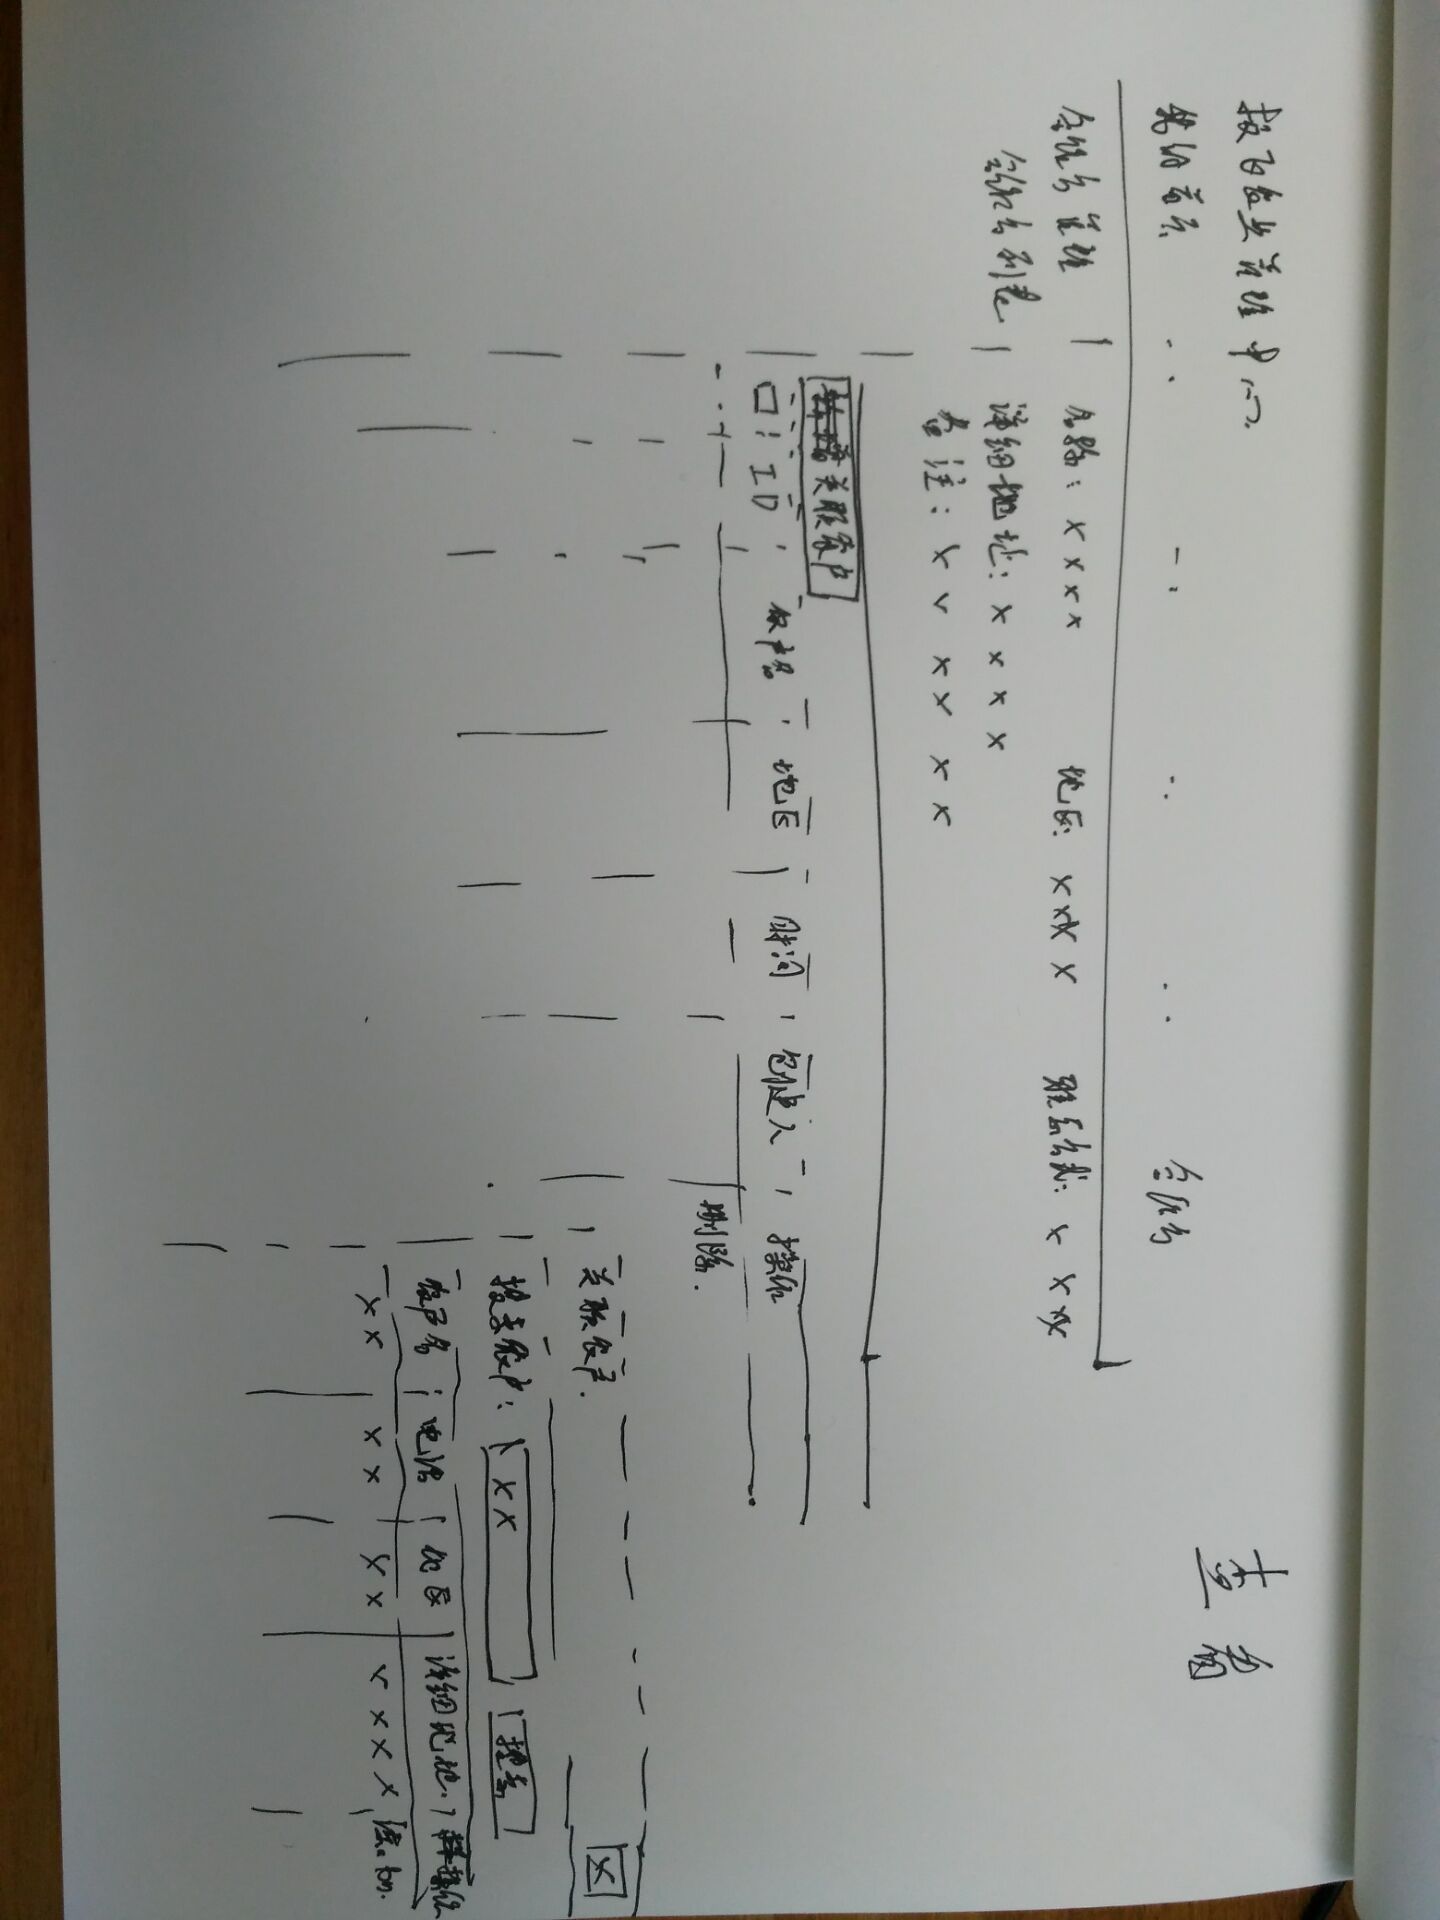 管理中心
我的首页 . . - . . . . . 合作方
查看
合作方管理
合作方列表
名称: x x x x 地区: x x x x 联系方式: x x x x
详细地址: x x x x
备注: x x x x x x
关联农户
ID 农户名 地区 时间 创建人 操作
删除.
关联农户. x
搜索农户: x x 搜索
农户名 电话 地区 详细地址 操作
x x x x x x x x x x 添加